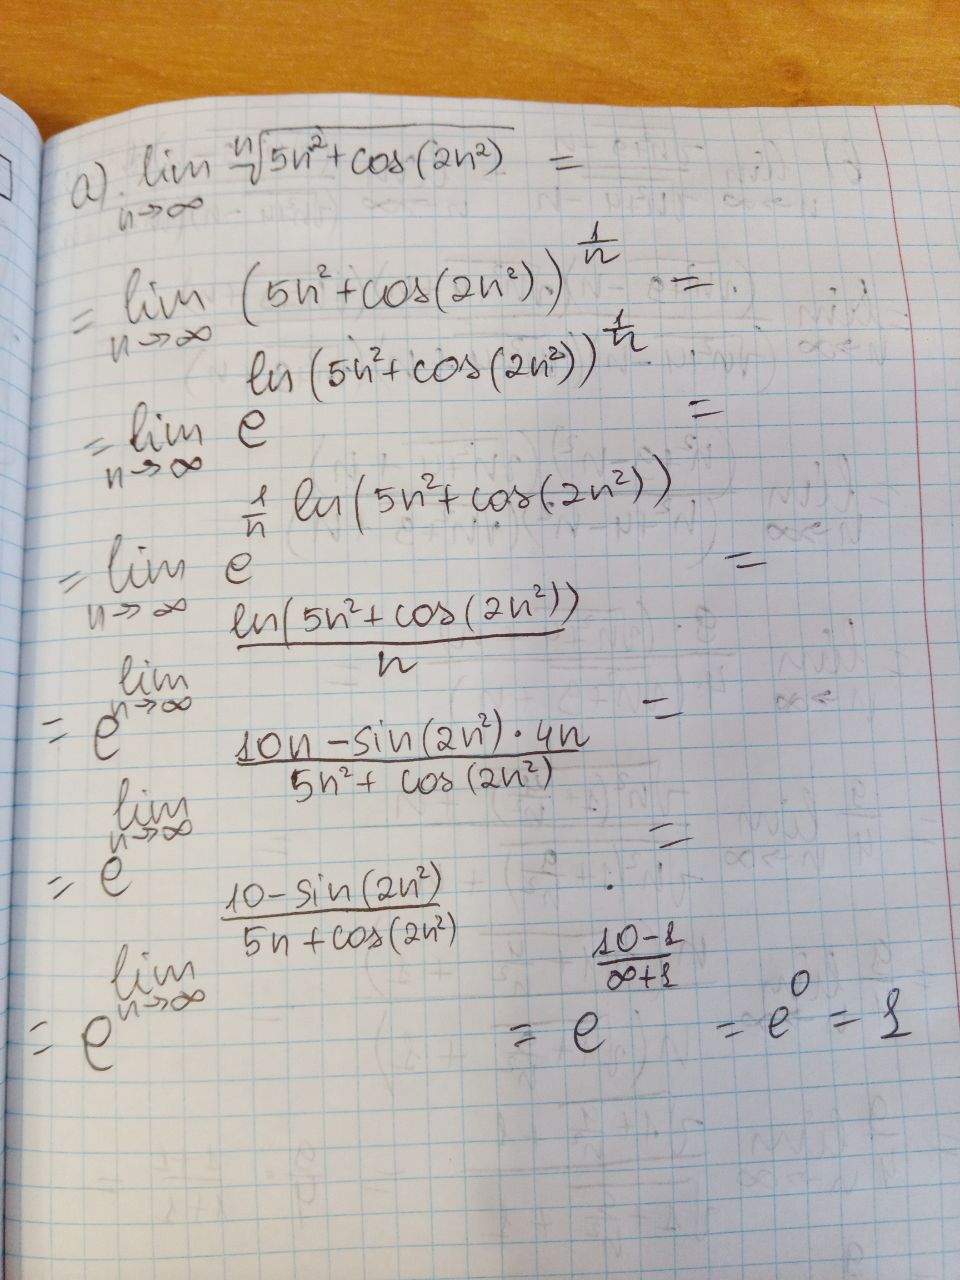 a) lim n→∞ ⁿ√(5n²+cos(2n²)) =
= lim n→∞ (5n²+cos(2n²))^(1/n) =
= lim n→∞ e^(ln(5n²+cos(2n²))^(1/n)) =
= lim n→∞ e^(1/n ln(5n²+cos(2n²))) =
= e^(lim n→∞ ln(5n²+cos(2n²))/n) =
= e^(lim n→∞ (10n-sin(2n²)·4n)/(5n²+cos(2n²))) =
= e^(lim n→∞ (10-sin(2n²))/(5n+cos(2n²))) = e^((10-1)/(∞+1)) = e^0 = 1